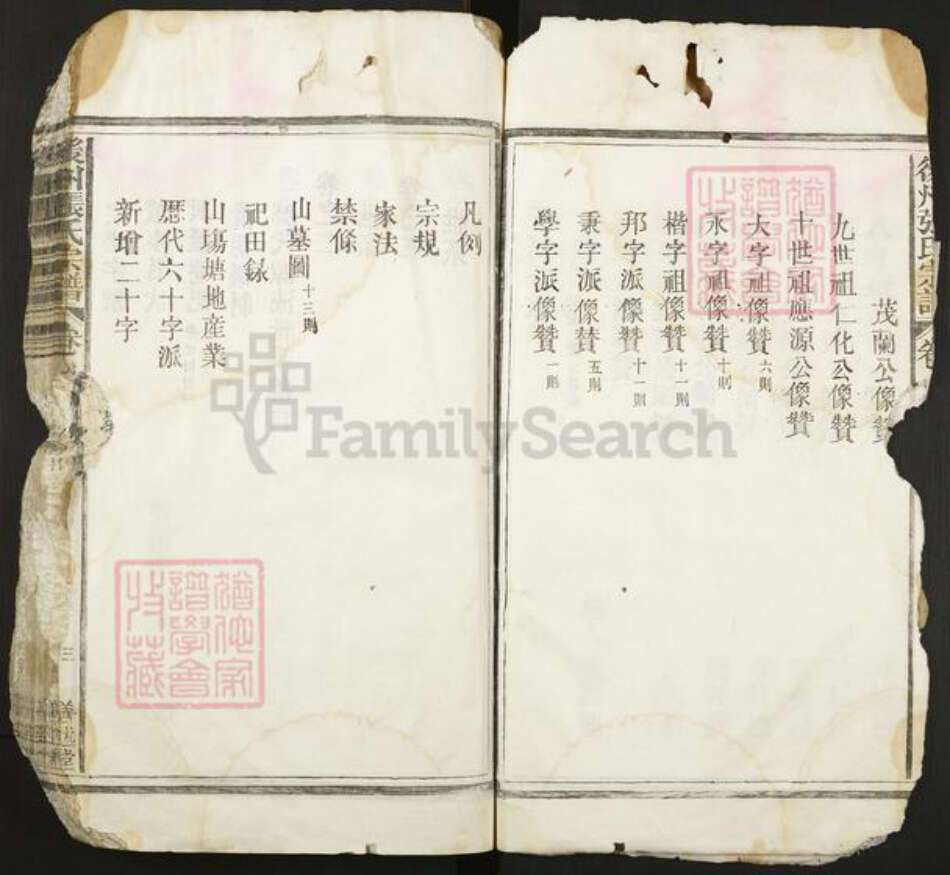 後州張氏宗譜
茂蘭公像贊
九世祖仁化公像贊
十世祖應源公像贊
大字祖像贊 六則
永字祖像贊 十則
楷字祖像贊 十一則
邦字派像贊 十一則
秉字派像贊 五則
學字派像贊 一則
凡例
宗規
家法
禁條
山墓圖 十三則
祀田錄
山塲塘地產業
歷代六十字派
新增二十字
張氏宗譜
三
堂
猶他家譜學會收藏
猶他家譜學會收藏
FamilySearch